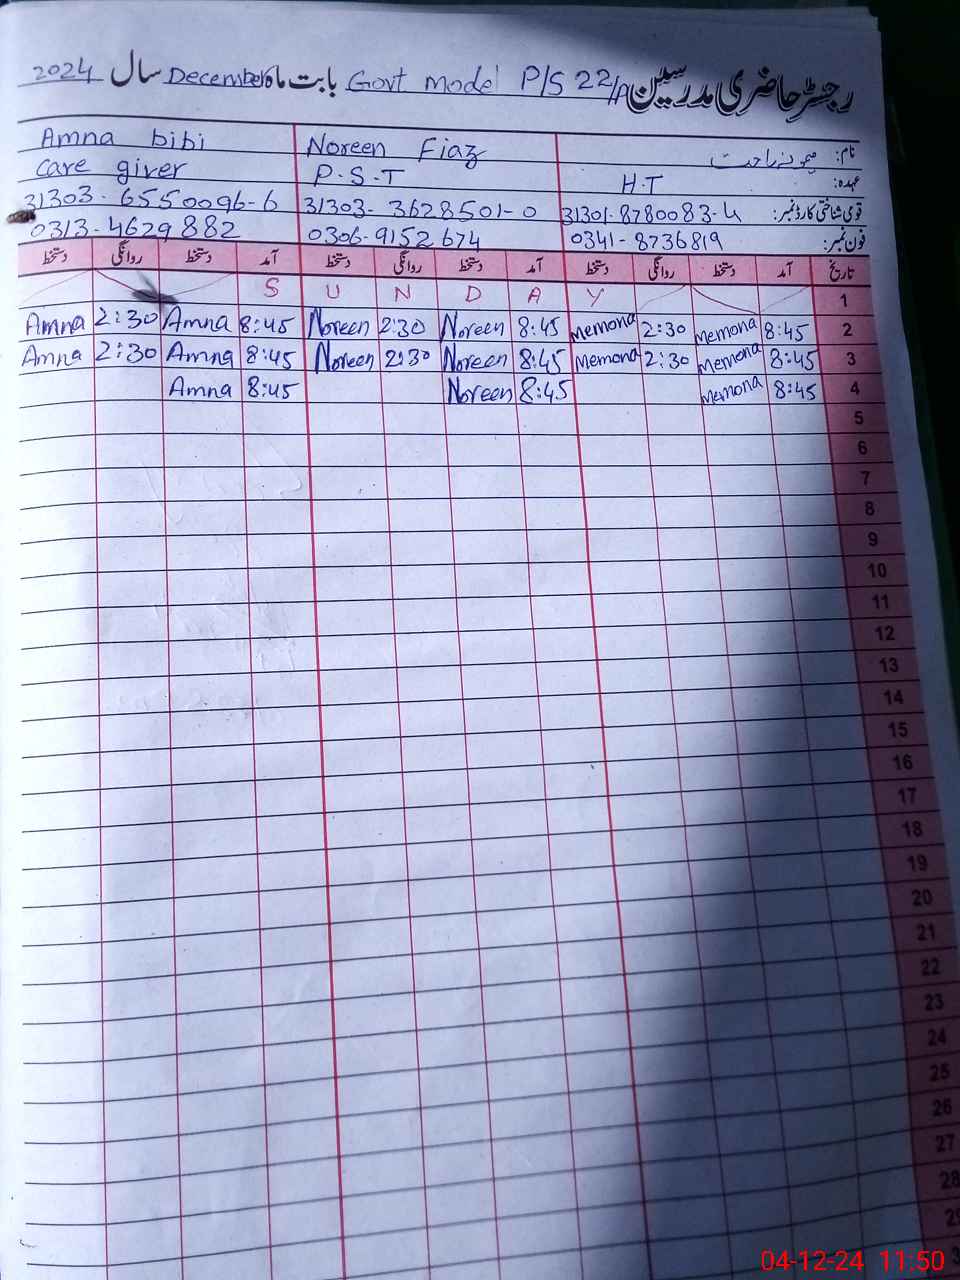 رجسٹر حاضری مدرسین Govt model P/S 22/A بابت ماہ December سال 2024
نام: میمونہ راحت Noreen Fiaz Amna bibi
عہدہ: H.T P.S.T care giver
قومی شناختی کارڈ نمبر: 31301-8780083-4 31303-3628501-0 31303-6550096-6
فون نمبر: 0341-8736819 0306-9152674 0313-4629882
تاریخ آمد دستخط روانگی دستخط آمد دستخط روانگی دستخط آمد دستخط روانگی دستخط
1 S U N D A Y
2 8:45 Memona 2:30 Memona 8:45 Noreen 2:30 Noreen 8:45 Amna 2:30 Amna
3 8:45 Memona 2:30 Memona 8:45 Noreen 2:30 Noreen 8:45 Amna 2:30 Amna
4 8:45 Memona 8:45 Noreen 8:45 Amna
5
6
7
8
9
10
11
12
13
14
15
16
17
18
19
20
21
22
23
24
25
26
27
28
04-12-24 11:50